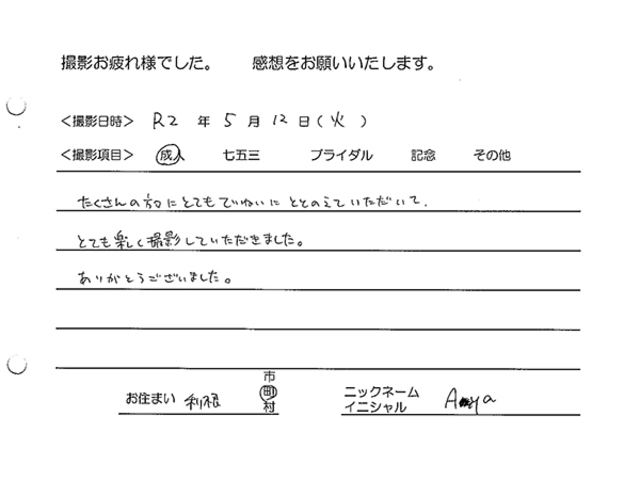 撮影お疲れ様でした。 感想をお願いいたします。
<撮影日時> R2 年 5 月 12 日(火)
<撮影項目> 成人 七五三 ブライダル 記念 その他
たくさんの方々にとてもていねいにととのえていただいて、
とても楽しく撮影していただきました。
ありがとうございました。
お住まい 利根 市 町 村
ニックネーム イニシャル